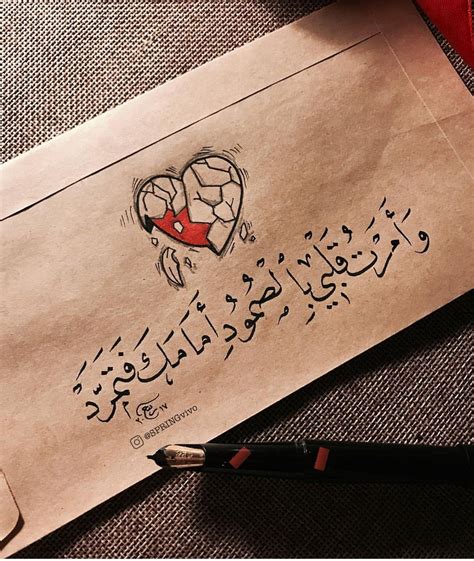 وَأَمَرْتُ قَلْبِي بِالْصُّمُودِ أَمَامَكَ فَتَمَرَّدَ
ربيع ٢٠١٧
@SPRINGvivo